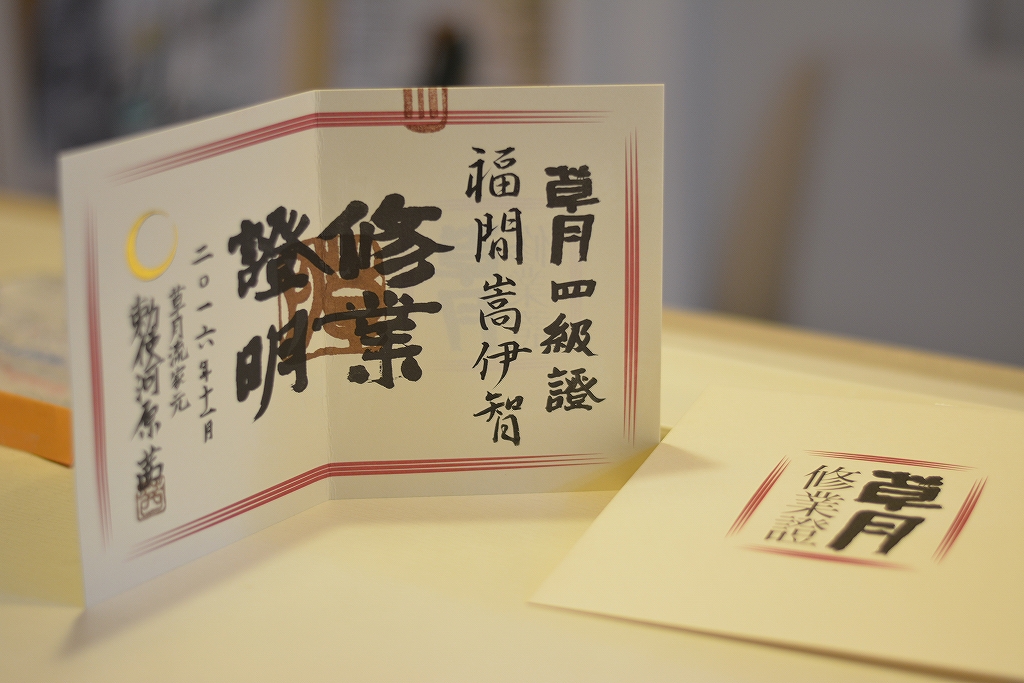 草月四級證
福間嵩伊智
修業
證明
二〇一六年十一月
草月流家元
勅使河原 茜
草月
修業證